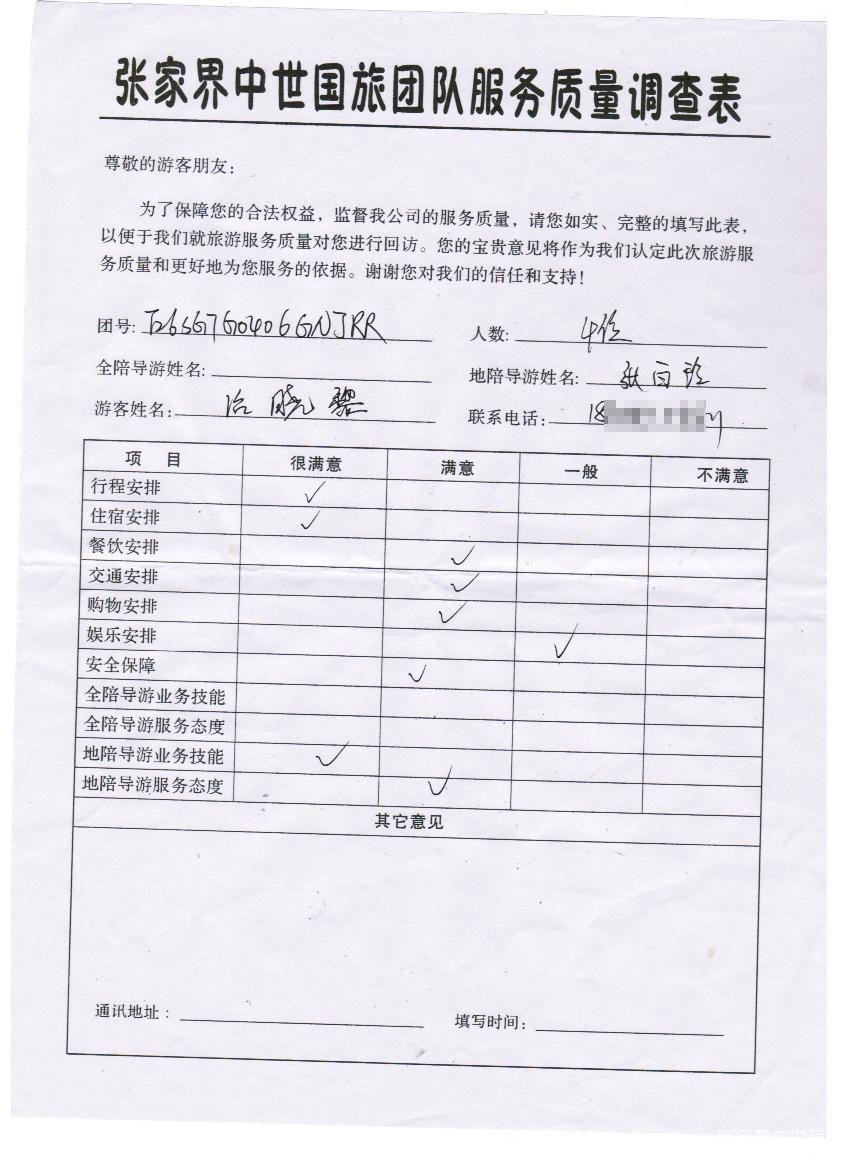 张家界中世国旅团队服务质量调查表
尊敬的游客朋友：
为了保障您的合法权益，监督我公司的服务质量，请您如实、完整的填写此表，
以便于我们就旅游服务质量对您进行回访。您的宝贵意见将作为我们认定此次旅游服
务质量和更好地为您服务的依据。谢谢您对我们的信任和支持！
团号: 人数: 4位
全陪导游姓名: 地陪导游姓名:
游客姓名: 联系电话: 18
项 目 很满意 满意 一般 不满意
行程安排 ✓
住宿安排 ✓
餐饮安排 ✓
交通安排 ✓
购物安排 ✓
娱乐安排 ✓
安全保障 ✓
全陪导游业务技能
全陪导游服务态度
地陪导游业务技能 ✓
地陪导游服务态度 ✓
其它意见
通讯地址： 填写时间: